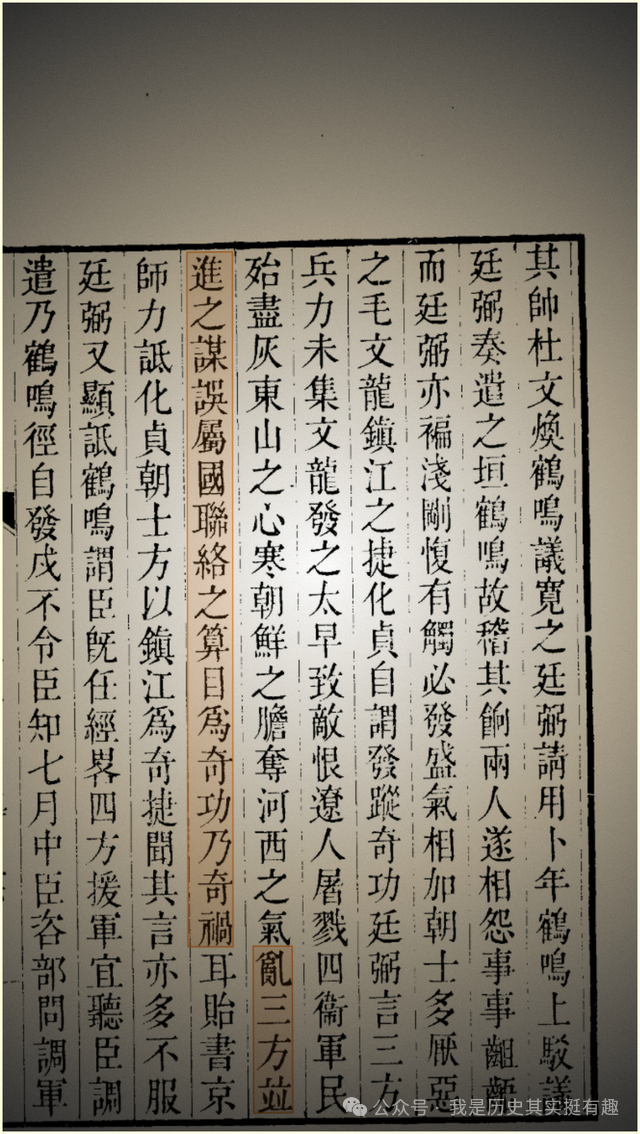 其帥杜文煥鶴鳴議寬之廷弼請用卜年鶴鳴上駁議
廷弼奏遣之垣鶴鳴故稽其餉兩人遂相怨事事齟齬
而廷弼亦褊淺剛愎有觸必發盛氣相加朝士多厭惡
之毛文龍鎮江之捷化貞自謂發蹤奇功廷弼言三方
兵力未集文龍發之太早致敵恨遼人屠戮四衞軍民
殆盡灰東山之心寒朝鮮之膽奪河西之氣亂三方並
進之謀誤屬國聯絡之算目為奇功乃奇禍耳貽書京
師力詆化貞朝士方以鎮江為奇捷聞其言亦多不服
廷弼又顯詆鶴鳴謂臣旣任經畧四方援軍宜聽臣調
遣乃鶴鳴徑自發戍不令臣知七月中臣咨部問調軍
公众号 · 我是历史其实挺有趣